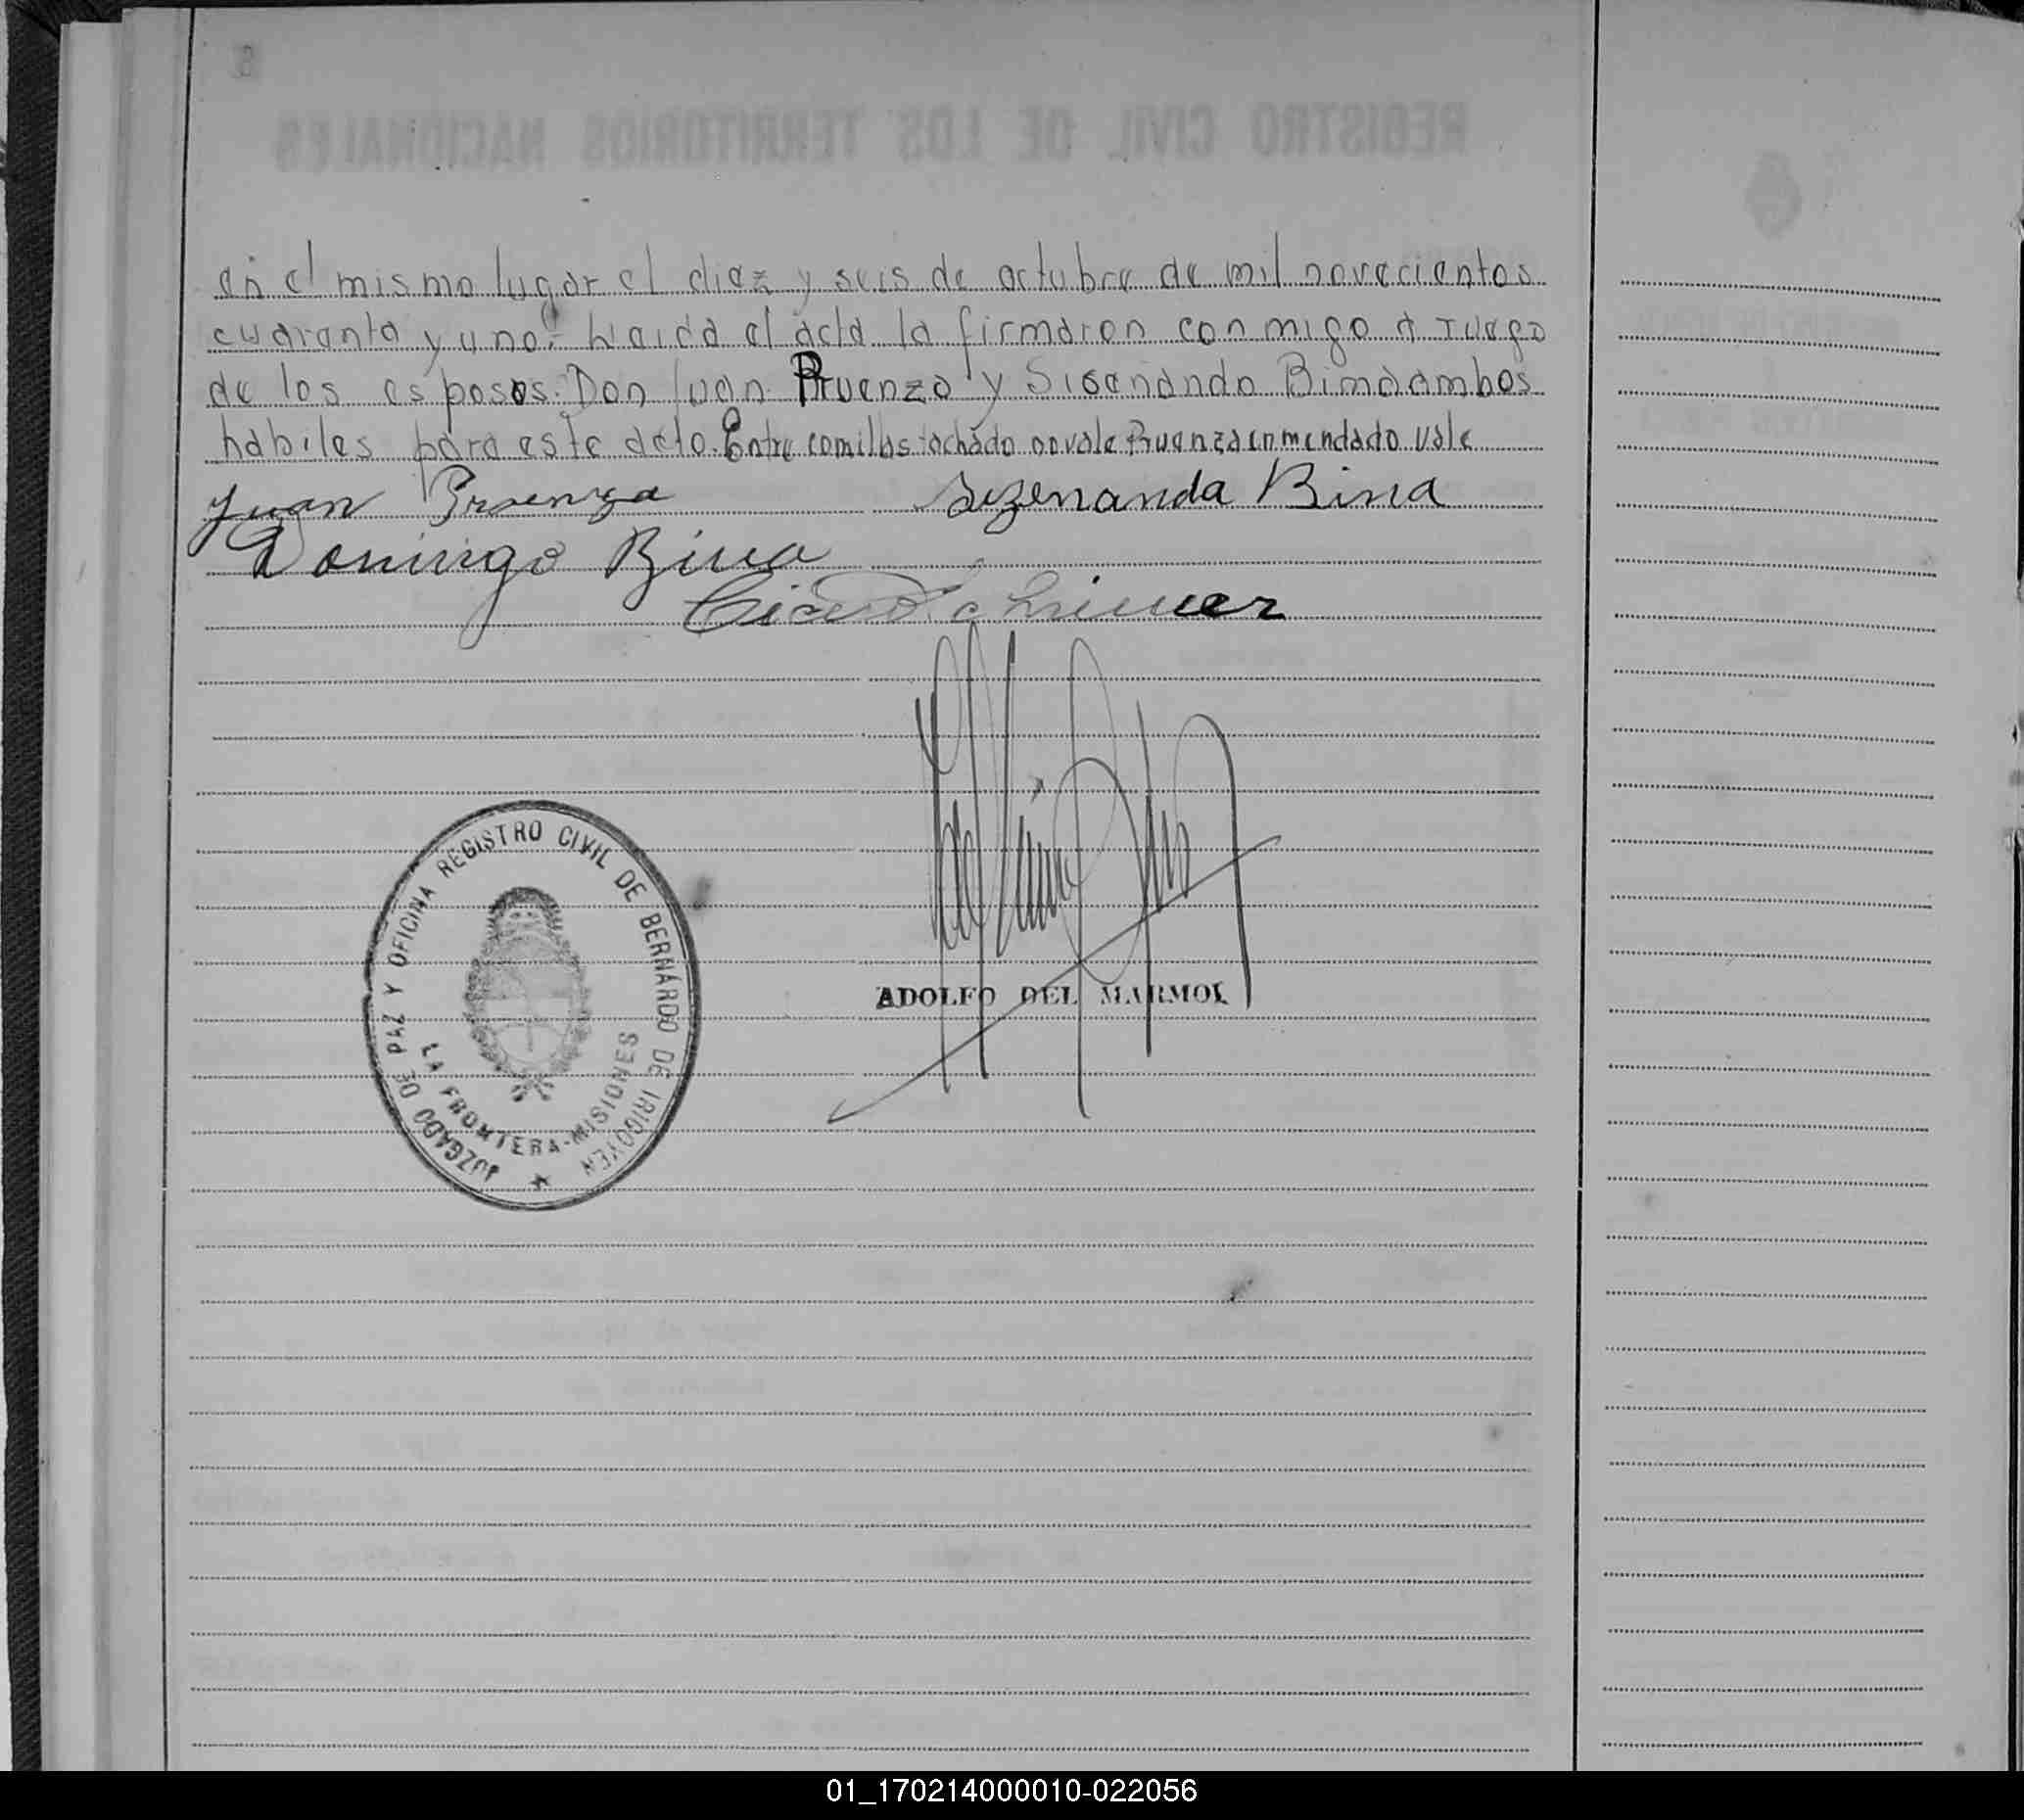 en el mismo lugar el diez y seis de octubre de mil novecientos
cuaranta y uno. Leida el acta la firmaron con migo A ruego
de los esposos. Don Juan Pruenza y Sisenando Bina ambos
habiles para este acto. Entre comillas tachado no vale Pruenza enmendado vale
Juan Proenza Sezenanda Bina
Domingo Bina
ADOLFO DEL MARMOL
JUZGADO DE PAZ Y OFICINA REGISTRO CIVIL DE BERNARDO DE IRIGOYEN
LA FRONTERA-MISIONES
01_170214000010-022056